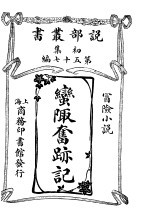 說部叢書
初集
第五十七編
冒險小說
蠻陬奮跡記
上海
商務印書館發行